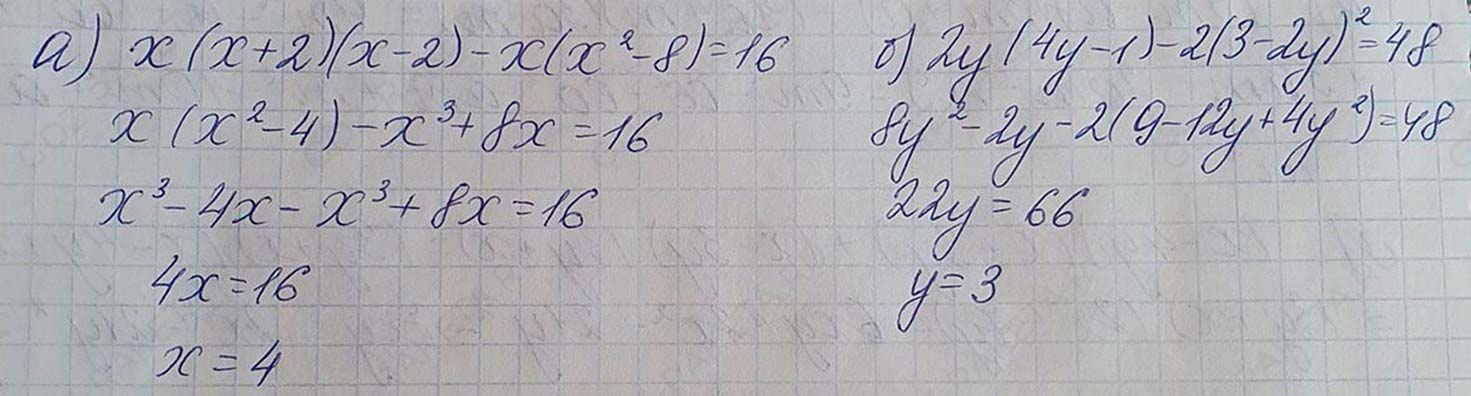 а) x(x+2)(x-2)-x(x²-8)=16
x(x²-4)-x³+8x=16
x³-4x-x³+8x=16
4x=16
x=4
б) 2y(4y-1)-2(3-2y)²=48
8y²-2y-2(9-12y+4y²)=48
22y=66
y=3